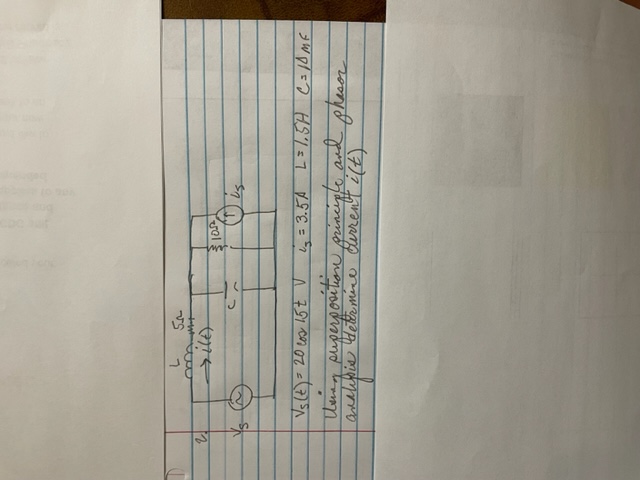 L 5Ω
→ i(t)
C
10Ω
is
Vs
Vs(t) = 20 cos 15t V is = 3.5A L = 1.5H C = 10 mF
Using superposition principle and phasor
analysis determine current i(t)